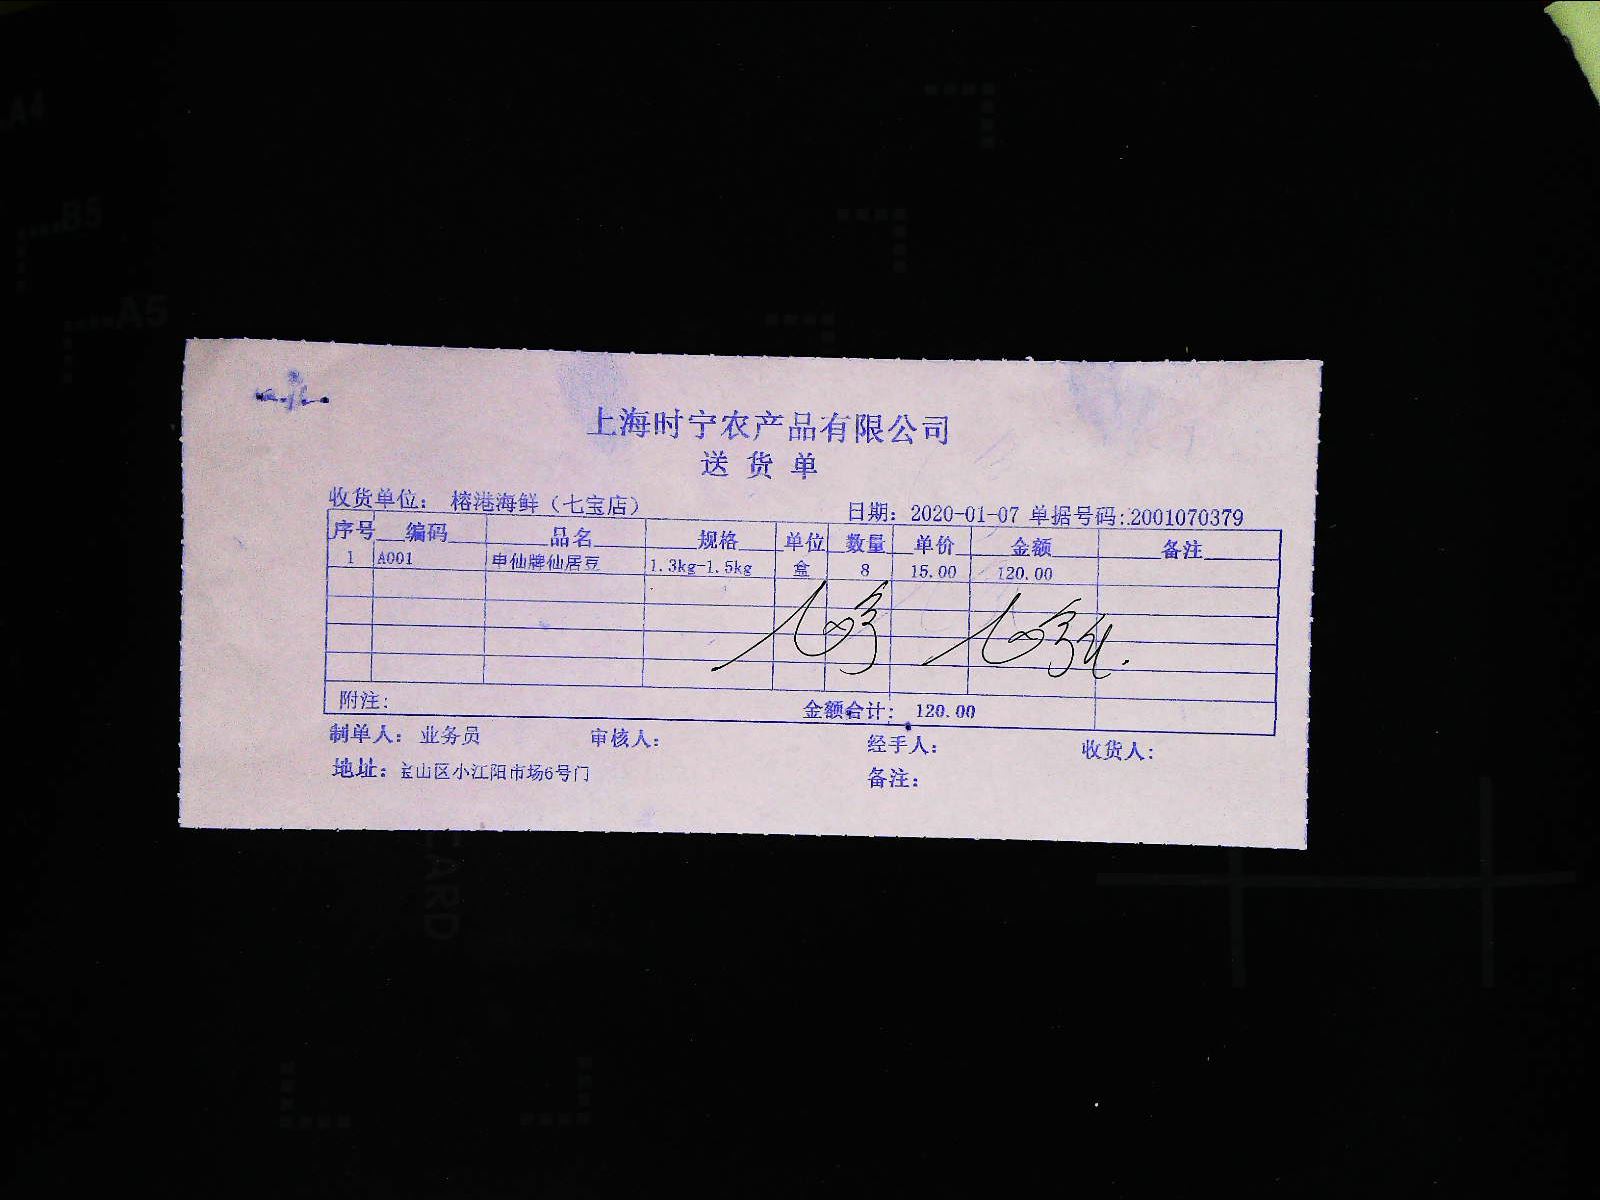 A4
B5
A5
上海时宁农产品有限公司
送货单
收货单位： 榕港海鲜（七宝店） 日期：2020-01-07 单据号码:2001070379
序号 编码 品名 规格 单位 数量 单价 金额 备注
1 A001 申仙牌仙居豆 1.3kg-1.5kg 盒 8 15.00 120.00
附注: 金额合计: 120.00
制单人：业务员 审核人: 经手人: 收货人:
地址：宝山区小江阳市场6号门 备注:
CARD